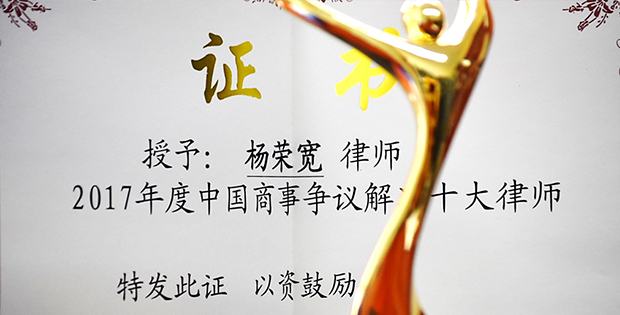 证书
授予： 杨荣宽 律师
2017年度中国商事争议解决十大律师
特发此证 以资鼓励